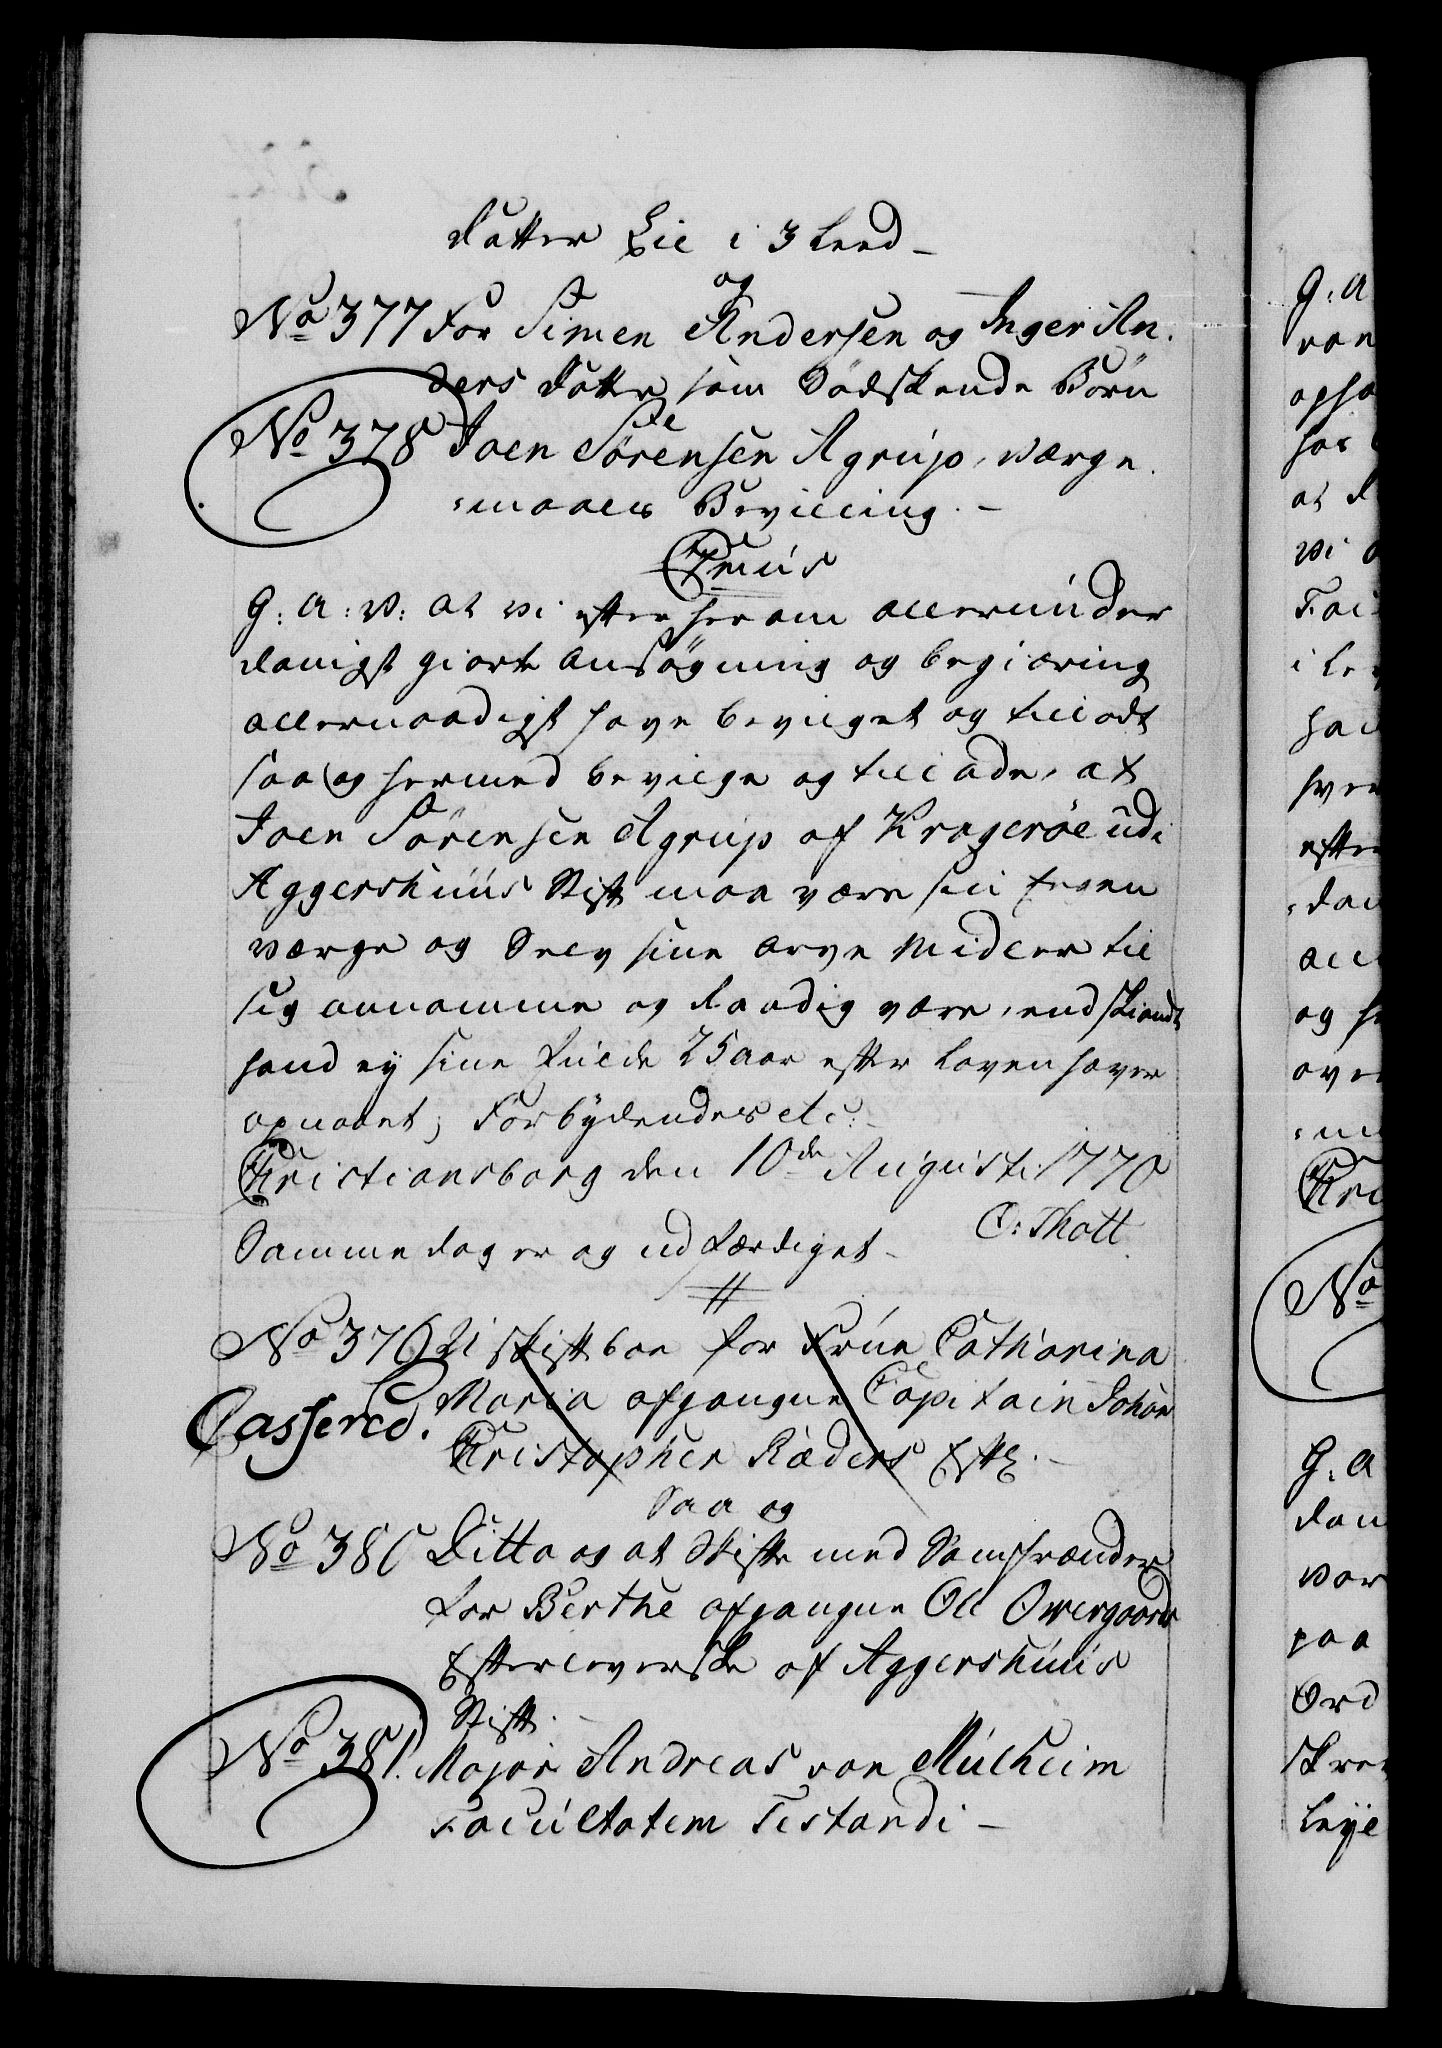 datter Lie i 3 Leed -
og
No 377 For Simen Andersen og Inger An,
ders datter som Södskende Börn
No 378 Joen Sörensen Agrup, værge,
=maals Bevilling. -
Cm:us
G: A: V: at vi efter herom allerunder
danigst giorte Ansögning og begiæring
allernaadigst have bevilget og tilladt
saa og hermed bevilge og tillade, at
Joen Sörensen Agrup af Krageröe udi
Aggershuus Stift maa være sin Egen
værge og Selv sine Arve Midler til
sig annamme og raadig være, endskiöndt
hand ej sine fulde 25 aar efter Loven haver
opnaaet; Forbydendes etc:
Christiansborg den 10de Augusti 1770
C: Thott
Samme dag er og udfærdiget -
No 379 Ui skiftboe for Frue Catharina
Cassered. Maria afgangne Capitain Johan
Christopher Ræders Eftl. -
Saa og
No 380 Ditto og at Skifte med Samfrænder
for Berthe afgangne Ole Overgaards
Efterleverske af Aggershuus
Stift. -
No 381. Major Andreas von Mülheim
Facultatem Testandi -
G: A
van
at
vi
Fai
i Le
efter
og
Chri
No
G: A
dan
vor
paa
Ord